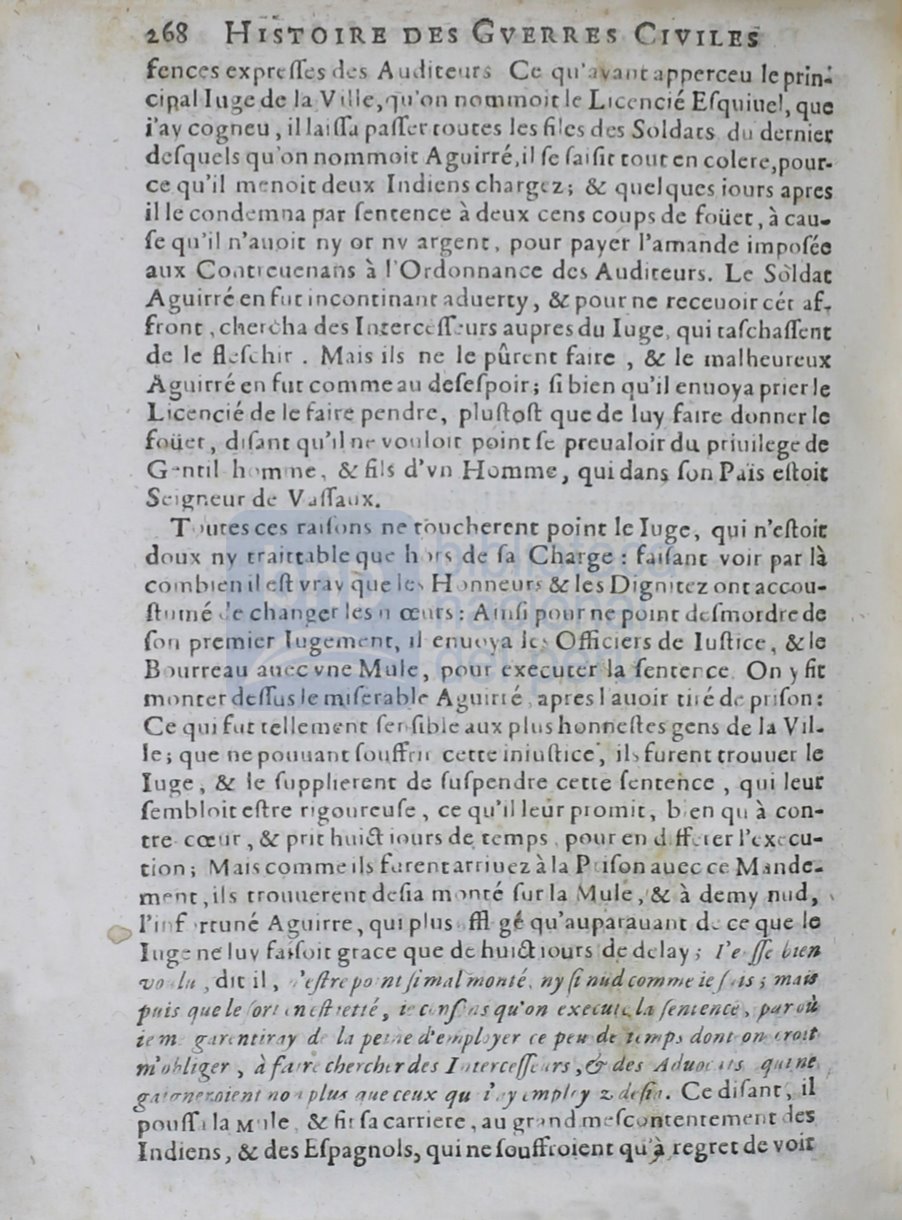 268 HISTOIRE DES GVERRES CIVILES
fences expreſſes des Auditeurs Ce qu'ayant apperceu le prin-
cipal Iuge de la Ville, qu'on nommoit le Licencié Eſquiuel, que
i'ay cogneu, il laiſſa paſſer toutes les files des Soldats du dernier
deſquels qu'on nommoit Aguirré, il ſe ſaiſit tout en colere, pour-
ce qu'il menoit deux Indiens chargez; & quelques iours apres
il le condemna par ſentence à deux cens coups de foüet, à cau-
ſe qu'il n'auoit ny or ny argent, pour payer l'amande impoſée
aux Contreuenans à l'Ordonnance des Auditeurs. Le Soldat
Aguirré en fut incontinant aduerty, & pour ne receuoir cét af-
front, chercha des Interceſſeurs aupres du Iuge, qui taſchaſſent
de le fleſchir. Mais ils ne le pûrent faire, & le malheureux
Aguirré en fut comme au deſeſpoir; ſi bien qu'il enuoya prier le
Licencié de le faire pendre, pluſtoſt que de luy faire donner le
foüet, diſant qu'il ne vouloit point ſe preualoir du priuilege de
Gentil homme, & fils d'vn Homme, qui dans ſon Païs eſtoit
Seigneur de Vaſſaux.
Toutes ces raiſons ne toucherent point le Iuge, qui n'eſtoit
doux ny traittable que hors de ſa Charge : faiſant voir par là
combien il eſt vray que les Honneurs & les Dignitez ont accou-
ſtumé de changer les mœurs : Ainſi pour ne point deſmordre de
ſon premier Iugement, il enuoya les Officiers de Iuſtice, & le
Bourreau auec vne Mule, pour executer la ſentence On y fit
monter deſſus le miſerable Aguirré, apres l'auoir tiré de priſon:
Ce qui fut tellement ſenſible aux plus honneſtes gens de la Vil-
le; que ne pouuant ſouffrir cette iniuſtice, ils furent trouuer le
Iuge, & le ſupplierent de ſuſpendre cette ſentence, qui leur
ſembloit eſtre rigoureuſe, ce qu'il leur promit, bien qu'à con-
tre cœur, & prit huict iours de temps, pour en differer l'execu-
tion; Mais comme ils furent arriuez à la Priſon auec ce Mande-
ment, ils trouuerent deſia monté ſur la Mule, & à demy nud,
l'infortuné Aguirre, qui plus affligé qu'auparauant de ce que le
Iuge ne luy faiſoit grace que de huict iours de delay; I'euſſe bien
voulu, dit il, n'eſtre point ſi mal monté, ny ſi nud comme ie ſuis; mais
puis que le ſort en eſt ietté, ie conſens qu'on execute la ſentence, par où
ie me garentiray de la peine d'employer ce peu de temps dont on croit
m'obliger, à faire chercher des Interceſſeurs, & des Aduocats qui ne
gaigneroient non plus que ceux que i'ay employez deſia. Ce diſant, il
pouſſa la Mule, & fit ſa carriere, au grand meſcontentement des
Indiens, & des Eſpagnols, qui ne ſouffroient qu'à regret de voir